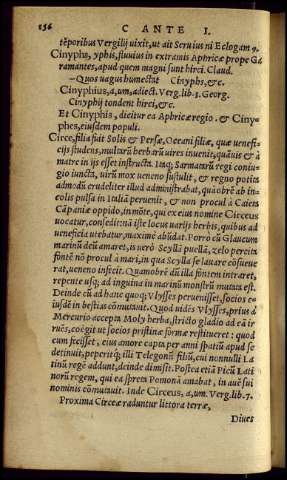 156 CANTE I.
tēporibus Vergilij uixit, ut ait Seruius ni Eclogam 9.
Cinyphs, yphis, fluuius in extremis Aphricæ prope Ga
ramantes, apud quem magni sunt hirci. Claud.
—Quos uagus humectat Cinyphs, &c.
Cinyphius, a, um, adiect. Verg. lib. 3. Georg.
Cinyphij tondent hirci, &c.
Et Cinyphis, dicitur ea Aphricæ regio. & Ciny-
phes, eiusdem populi.
Circe, filia fuit Solis & Persæ, Oceani filiæ, quæ uenefi-
cijs studens, multarū herbarū uires inuenit, quāuis & à
matre in ijs esset instructa. Itaq; Sarmatarū regi coniu-
gio iuncta, uirū mox ueneno sustulit, & regno potita
admodū crudeliter illud administrabat, quāobrē ab in-
colis pulsa in Italiā peruenit, & non procul à Caieta
Cāpaniæ oppido, in mōte, qui ex eius nomine Circeus
uocatur, consedit: nā iste locus uarijs herbis, quibus ad
ueneficia utebatur, maximè abūdat. Porrò cū Glaucum
marinū deū amaret, is uerò Scyllā puellā, zelo percita
fontē nō procul à mari, in qua Scylla se lauare cōsueue
rat, ueneno infecit. Quamobrē dū illa fontem intraret,
repente usq; ad inguina in marinū monstrū mutata est.
Deinde cū ad hanc quoq; Vlysses peruenisset, socios e-
iusdē in bestias cōmutauit. Quod uidēs Vlysses, prius à
Mercurio accepta Moly herba, stricto gladio ad eā ir-
ruēs, coëgit ut socios pristinæ formæ restitueret: quod
cum fecisset, eius amore capta per anni spatiū apud se
detinuit, peperitq; illi Telegonū filiū, cui nonnulli La
tinū regē addunt, deinde dimisit. Postea etiā Picū Lati
norū regem, qui ea spreta Pomonā amabat, in auē sui
nominis cōmutauit. Inde Circæus, a, um. Verg. lib. 7.
Proxima Circeæ raduntur littora terræ,
Diues